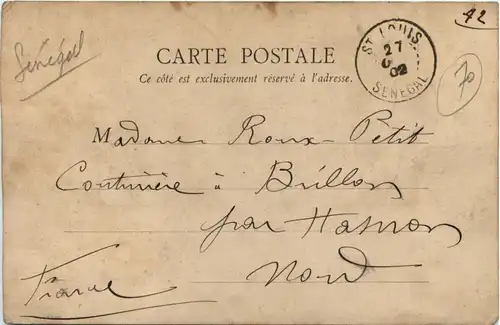 A2
Sénégal
CARTE POSTALE
Ce côté est exclusivement réservé à l'adresse.
ST LOUIS
27
02
SENEGAL
70
Madame Roux-Petit
Couturière à Brillon
par Hasnon
Nord
France